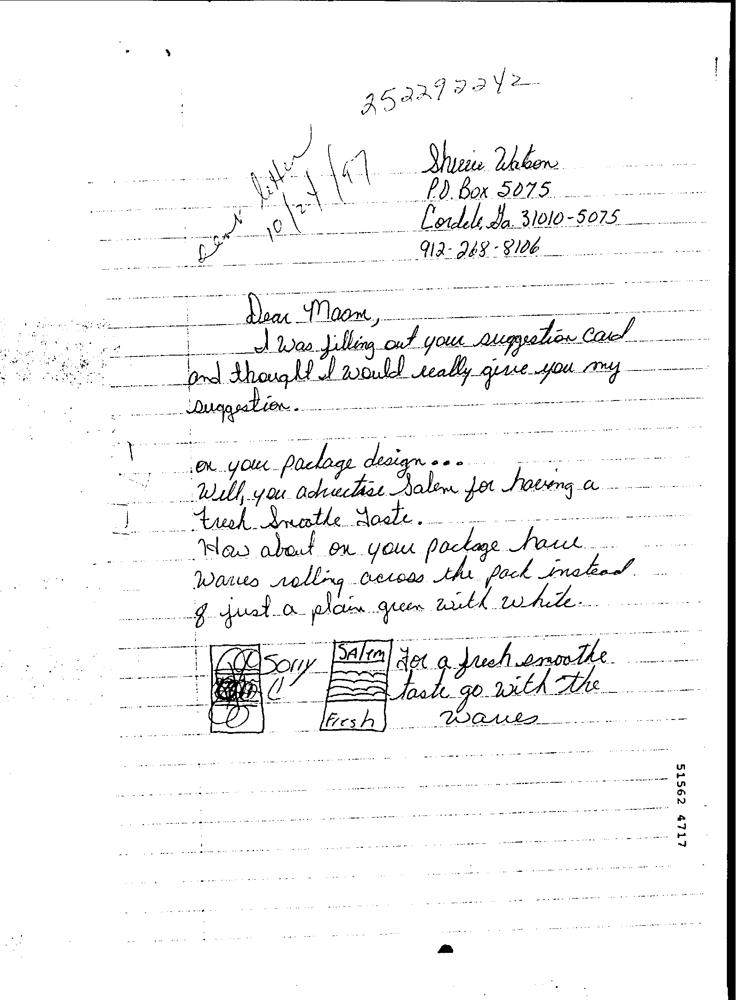 252292242
sent letter
10/24/97
Sherrie Watson
P.O. Box 5075
Cordele, Ga. 31010-5075
912-268-8106
Dear Maam,
I was filling out your suggestion card
and thought I would really give you my
suggestion.
on your package design...
Well, you advertise Salem for having a
Fresh Smoothe Taste.
How about on your package have
Waves rolling across the pack instead
of just a plain green with white.
Sorry
SAlem
Fresh
For a fresh smoothe
taste go with the
waves
51562 4717